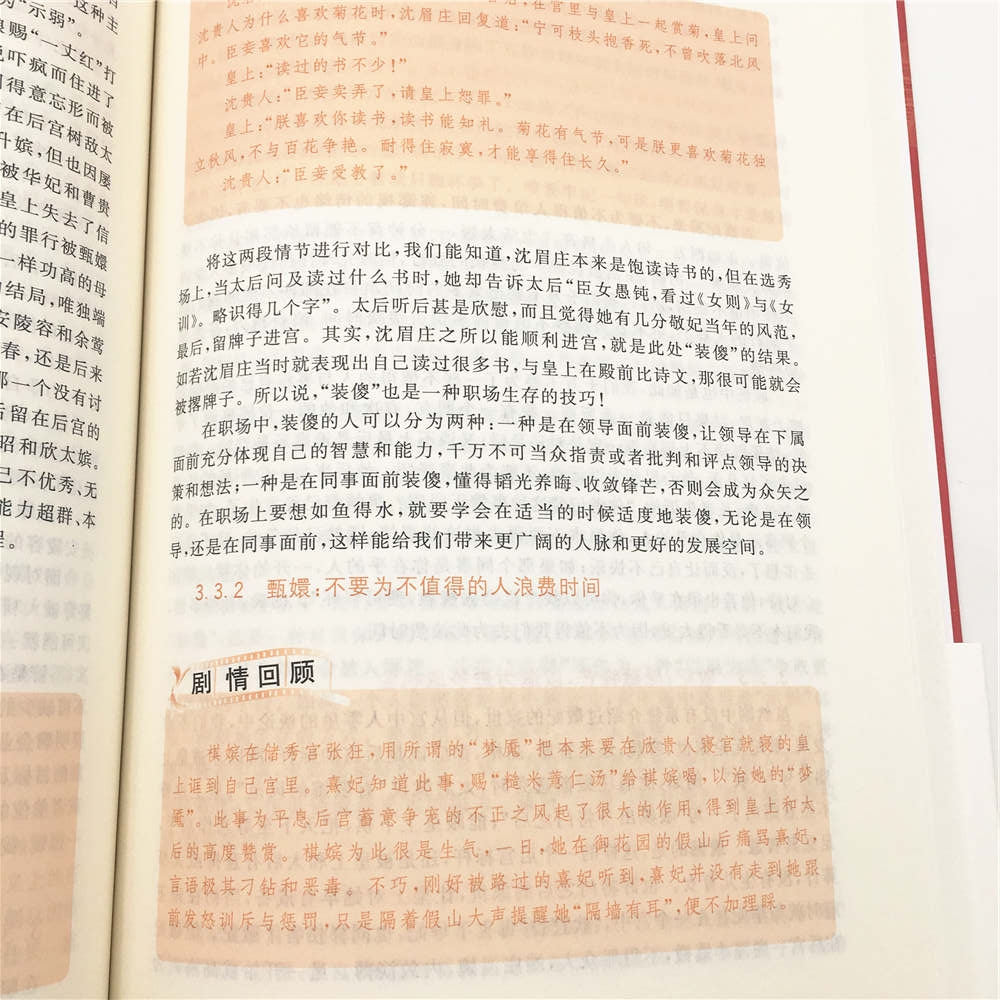 种主
为“示弱”。
赐“一丈红”打
吓疯而住进了
得意忘形而被
在后宫树敌太
升嫔，但也因屡
被华妃和曹贵
皇上失去了信
的罪行被甄嬛
一样功高的母
结局，唯独端
安陵容和余莺
春，还是后来
那一个没有讨
后留在后宫的
昭和欣太嫔。
己不优秀、无
能力超群、本
在宫里与皇上一起赏菊，皇上问
沈贵人为什么喜欢菊花时，沈眉庄回复道：“宁可枝头抱香死，不曾吹落北风
中。臣妾喜欢它的气节。”
皇上：“读过的书不少！”
沈贵人：“臣妾卖弄了，请皇上恕罪。”
皇上：“朕喜欢你读书，读书能知礼。菊花有气节，可是朕更喜欢菊花独
立秋风，不与百花争艳。耐得住寂寞，才能享得住长久。”
沈贵人：“臣妾受教了。”
将这两段情节进行对比，我们能知道，沈眉庄本来是饱读诗书的，但在选秀
场上，当太后问及读过什么书时，她却告诉太后“臣女愚钝，看过《女则》与《女
训》。略识得几个字”。太后听后甚是欣慰，而且觉得她有几分敬妃当年的风范，
最后，留牌子进宫。其实，沈眉庄之所以能顺利进宫，就是此处“装傻”的结果。
如若沈眉庄当时就表现出自己读过很多书，与皇上在殿前比诗文，那很可能就会
被撂牌子。所以说，“装傻”也是一种职场生存的技巧！
在职场中，装傻的人可以分为两种：一种是在领导面前装傻，让领导在下属
面前充分体现自己的智慧和能力，千万不可当众指责或者批判和评点领导的决
策和想法；一种是在同事面前装傻，懂得韬光养晦、收敛锋芒，否则会成为众矢之
的。在职场上要想如鱼得水，就要学会在适当的时候适度地装傻，无论是在领
导，还是在同事面前，这样能给我们带来更广阔的人脉和更好的发展空间。
3.3.2 甄嬛：不要为不值得的人浪费时间
剧情回顾
棋嫔在储秀宫张狂，用所谓的“梦魇”把本来要在欣贵人寝宫就寝的皇
上诓到自己宫里。熹妃知道此事，赐“糙米薏仁汤”给祺嫔喝，以治她的“梦
魇”。此事为平息后宫蓄意争宠的不正之风起了很大的作用，得到皇上和太
后的高度赞赏。棋嫔为此很是生气，一日，她在御花园的假山后痛骂熹妃，
言语极其刁钻和恶毒。不巧，刚好被路过的熹妃听到，熹妃并没有走到她跟
前发怒训斥与惩罚，只是隔着假山大声提醒她“隔墙有耳”，便不加理睬。